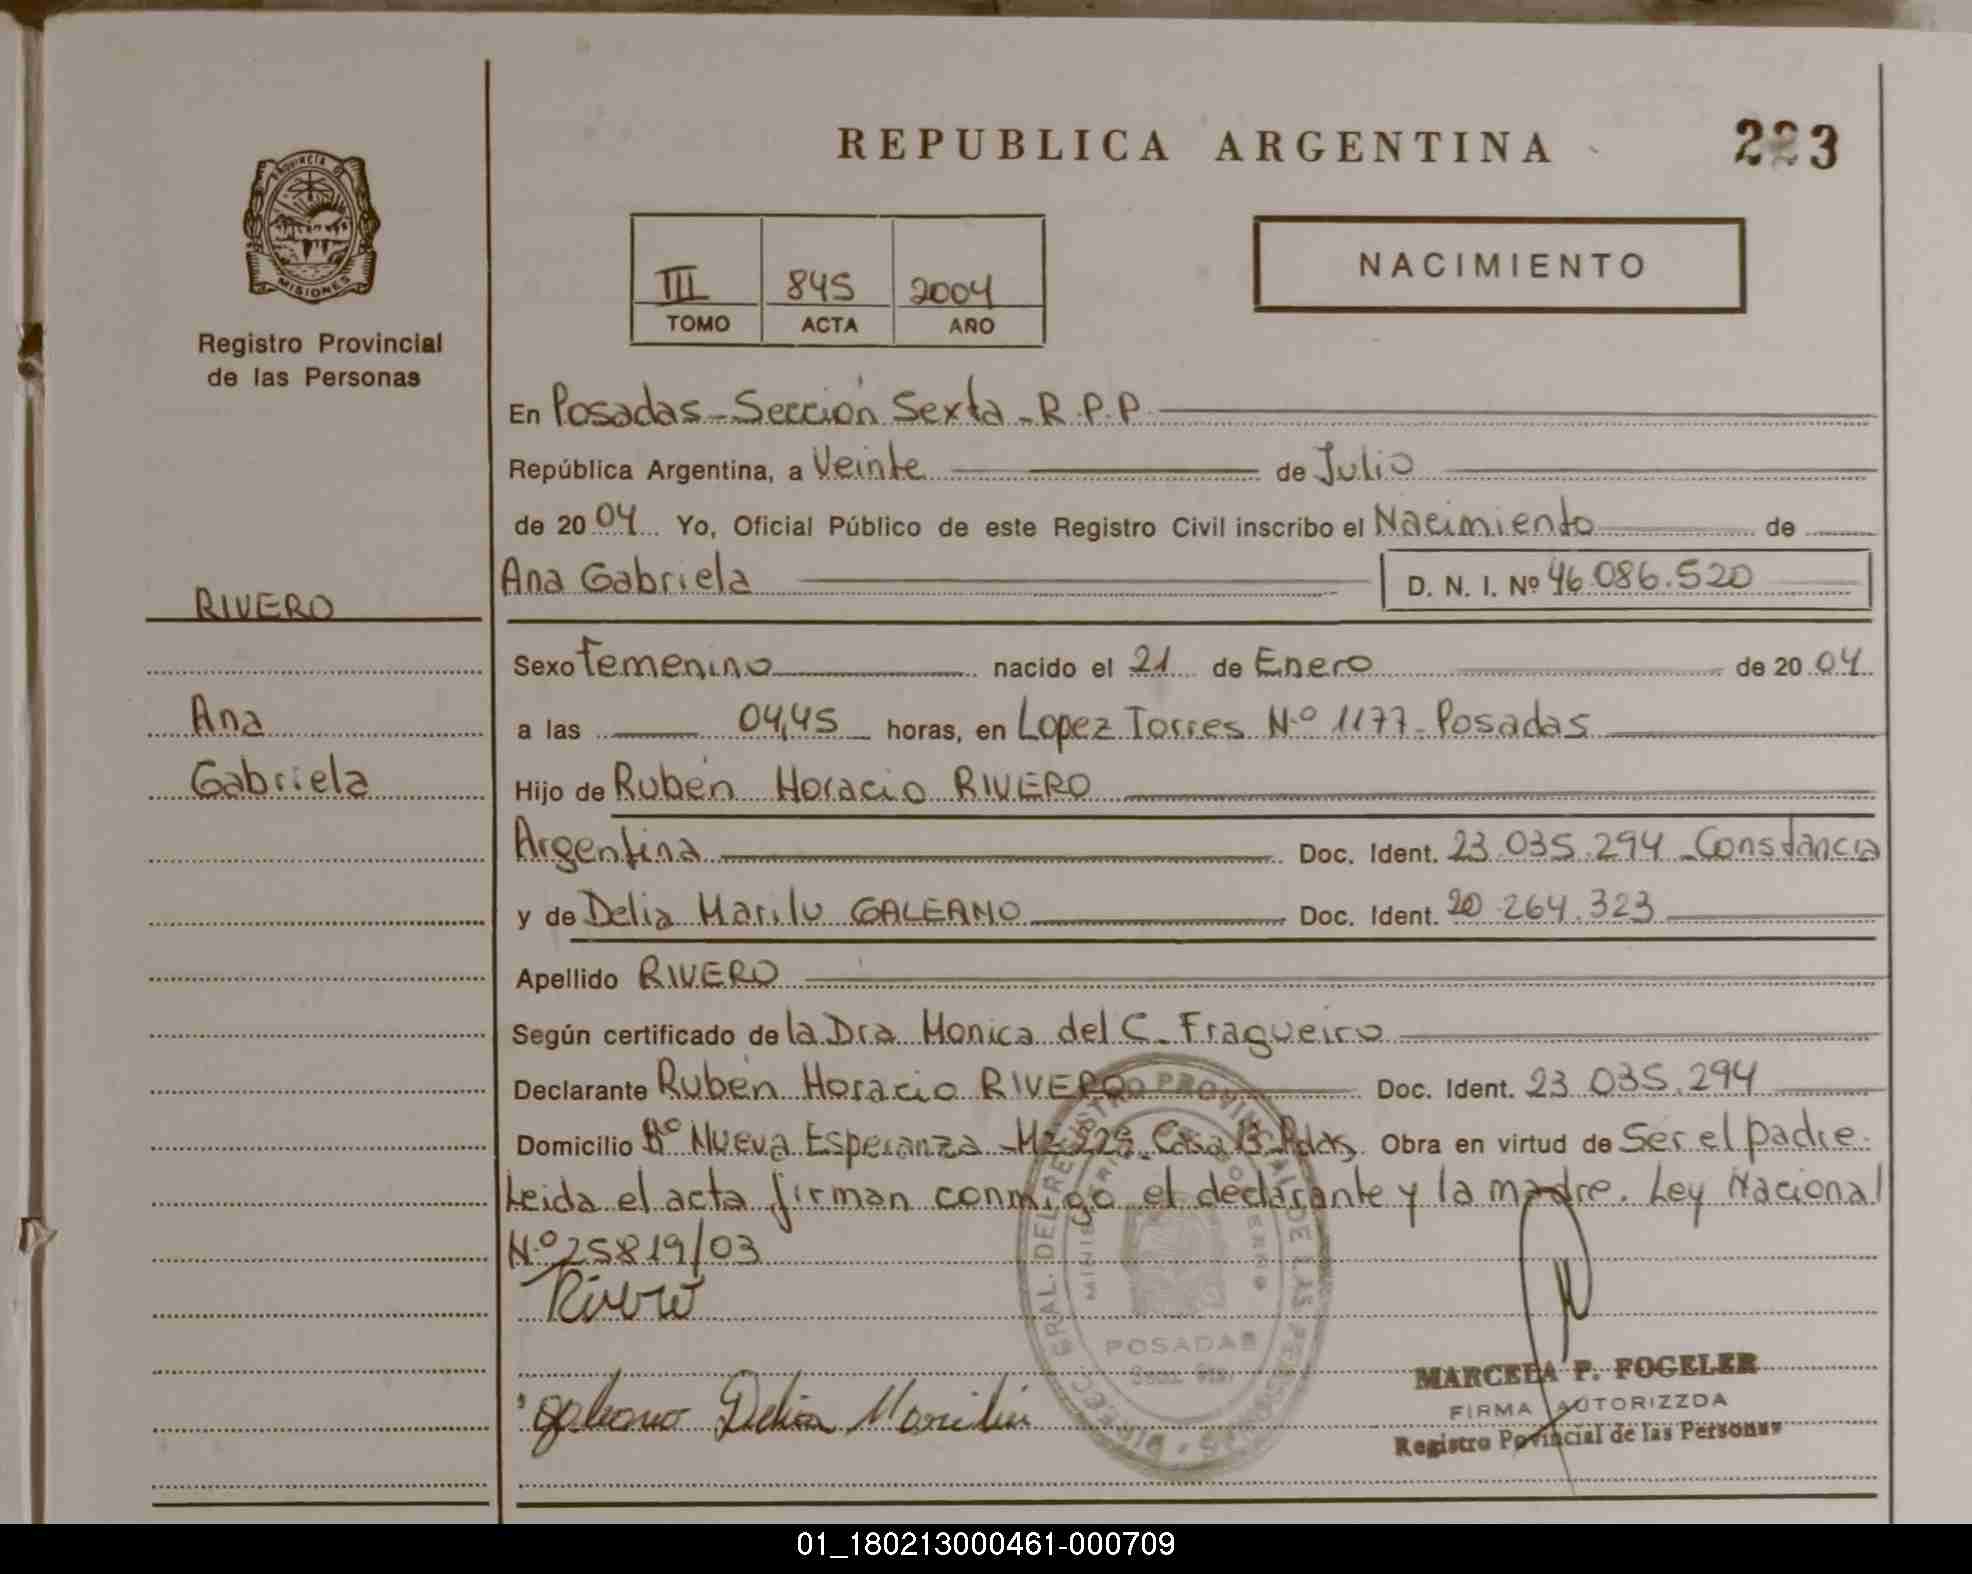 REPUBLICA ARGENTINA
223
PROVINCIA DE
MISIONES
Registro Provincial
de las Personas
III 845 2004
TOMO ACTA AÑO
NACIMIENTO
En Posadas - Sección Sexta - R.P.P.
República Argentina, a Veinte de Julio
de 2004 Yo, Oficial Público de este Registro Civil inscribo el Nacimiento de
Ana Gabriela D. N. I. Nº 46.086.520
RIVERO
Ana
Gabriela
Sexo Femenino nacido el 21 de Enero de 2004
a las 04,45 horas, en Lopez Torres N.º 1177 - Posadas
Hijo de Rubén Horacio RIVERO
Argentina Doc. Ident. 23.035.294 - Constancia
y de Delia Marilu GALEANO Doc. Ident. 20.264.323
Apellido RIVERO
Según certificado de la Dra Monica del C. Fragueiro
Declarante Rubén Horacio RIVERO Doc. Ident. 23.035.294
Domicilio Bº Nueva Esperanza - Mz Casa Pdas. Obra en virtud de Ser el padre.
Leida el acta firman conmigo el declarante y la madre. Ley Nacional
N.º 25819/03
Rivero
Galeano Delia Marilu
POSADAS
MARCELA P. FOGELER
FIRMA AUTORIZZDA
Registro Povincial de las Personas
01_180213000461-000709